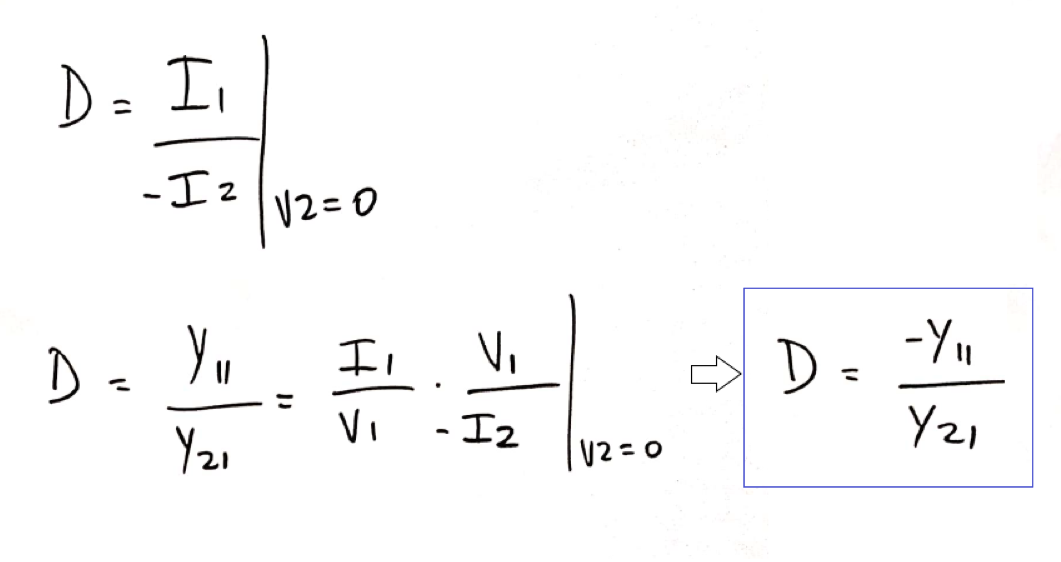 D = I1 / -I2 | V2=0
D = Y11 / Y21 = I1 / V1 · V1 / -I2 | V2=0 ⇨ D = -Y11 / Y21